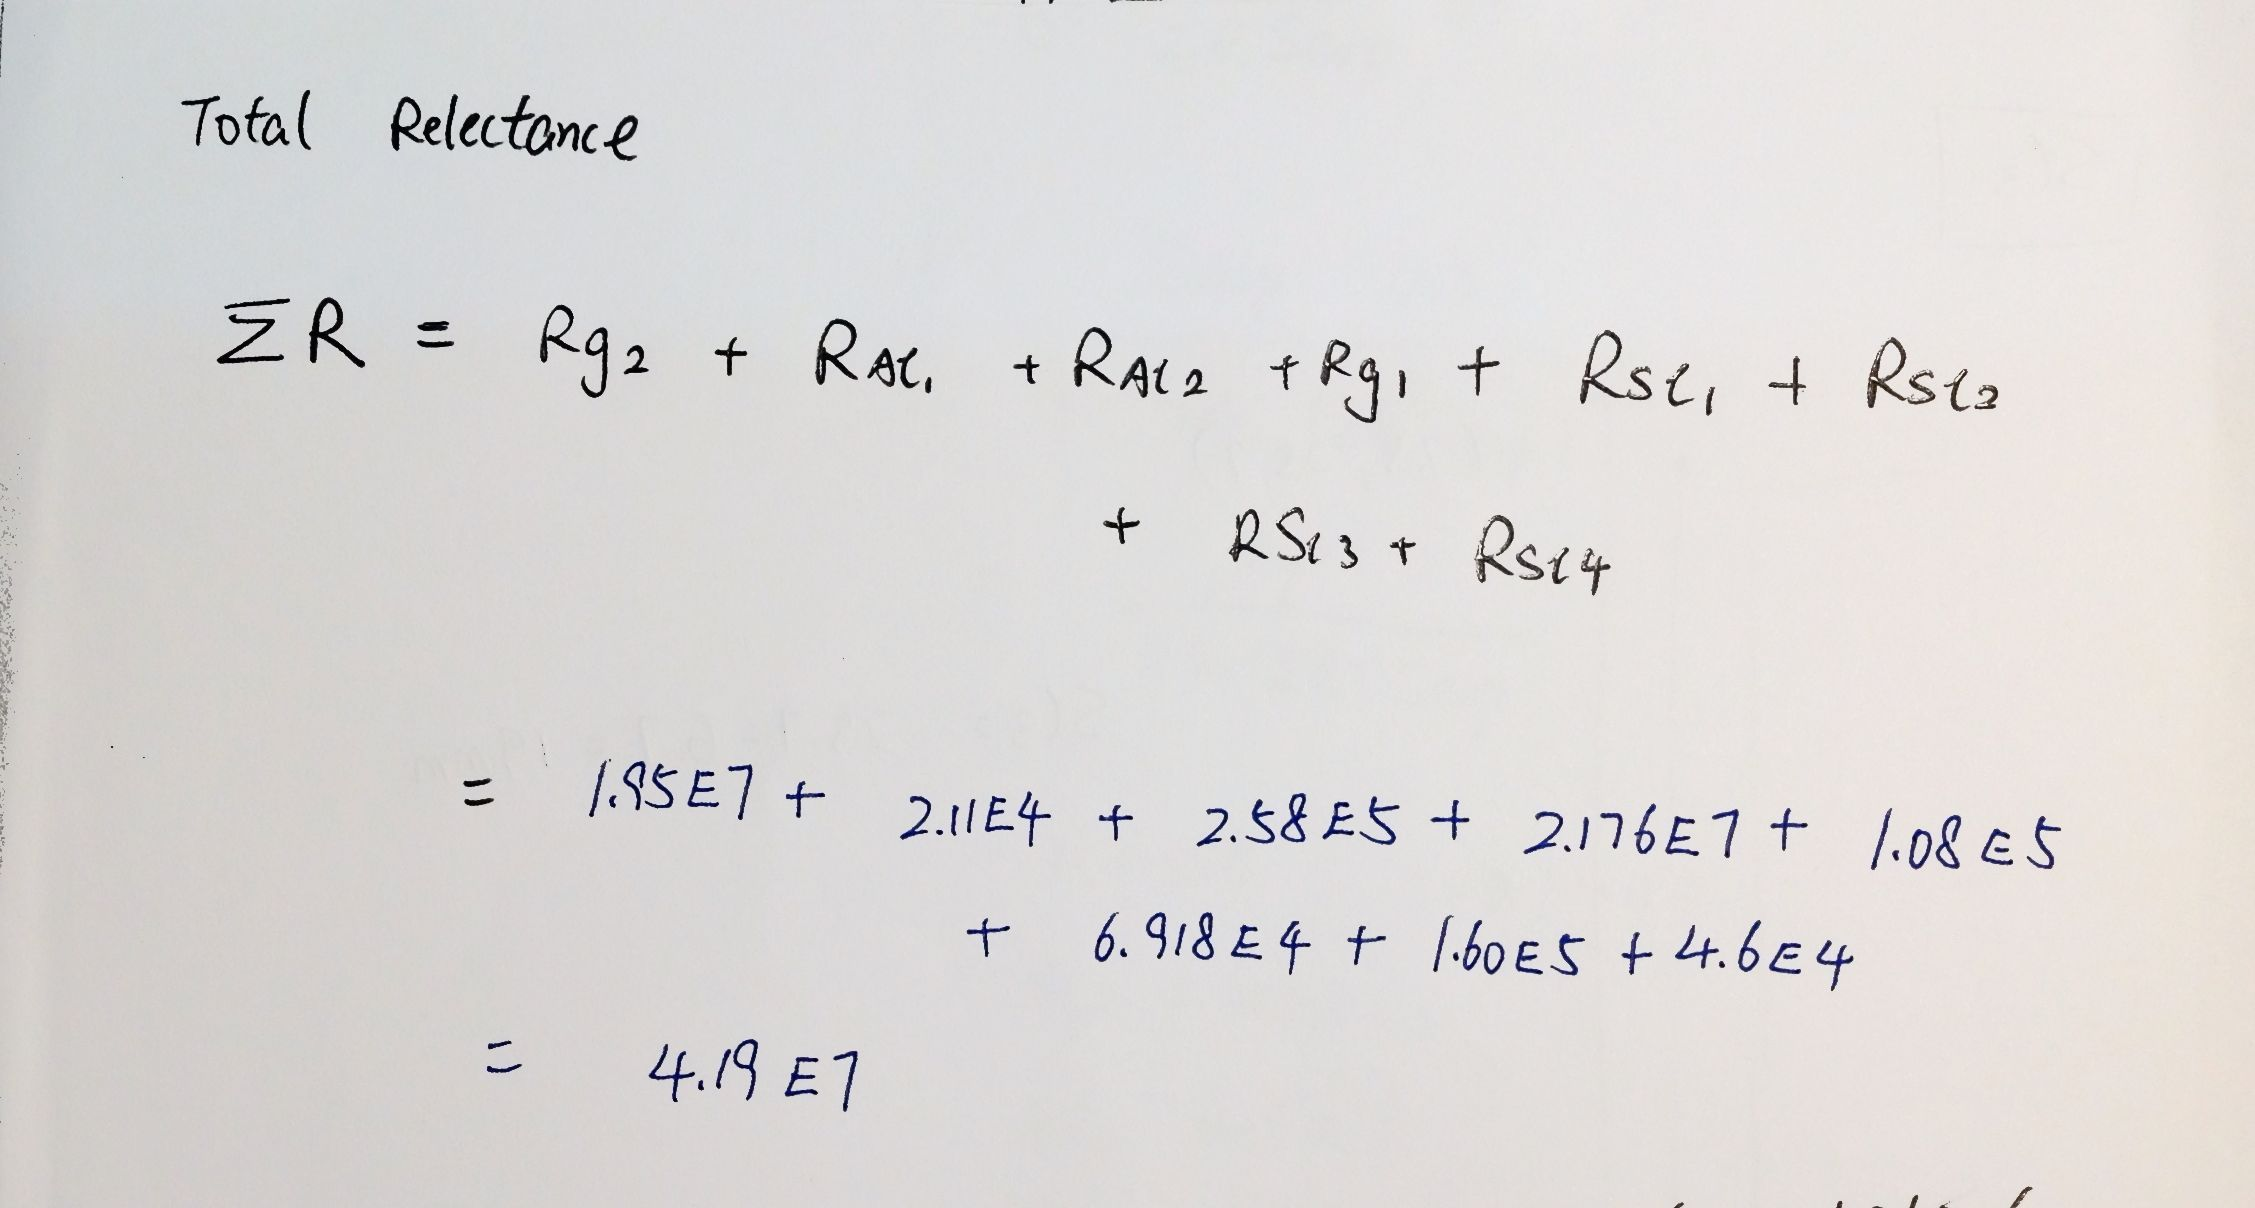 Total Relectance
ΣR = Rg2 + RAl1 + RAl2 + Rg1 + RSl1 + RSl2
+ RSl3 + RSl4
= 1.95E7 + 2.11E4 + 2.58E5 + 2.176E7 + 1.08E5
+ 6.918E4 + 1.60E5 + 4.6E4
= 4.19E7